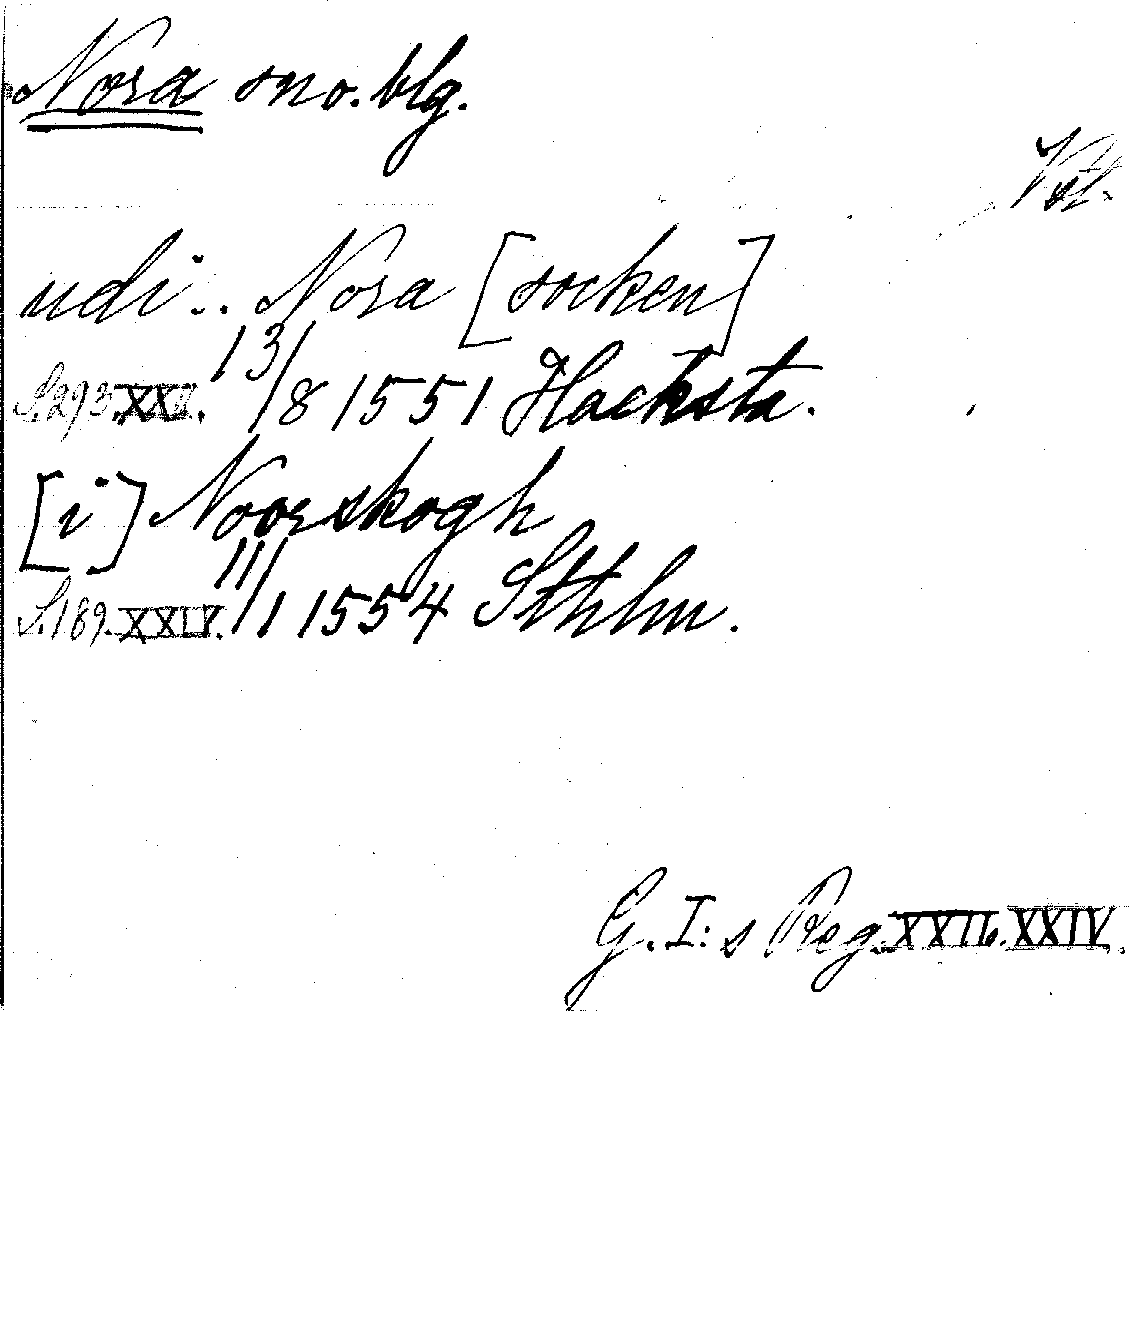 Nora sno. blg.
Vstl.
udi .. Nora [socken]
S. 293. XXII. 13/8 1551 Hacksta.
[i] Noorskogh
S. 189. XXIV. 11/1 1554 Sthlm.
G. I:s Reg. XXII. XXIV.